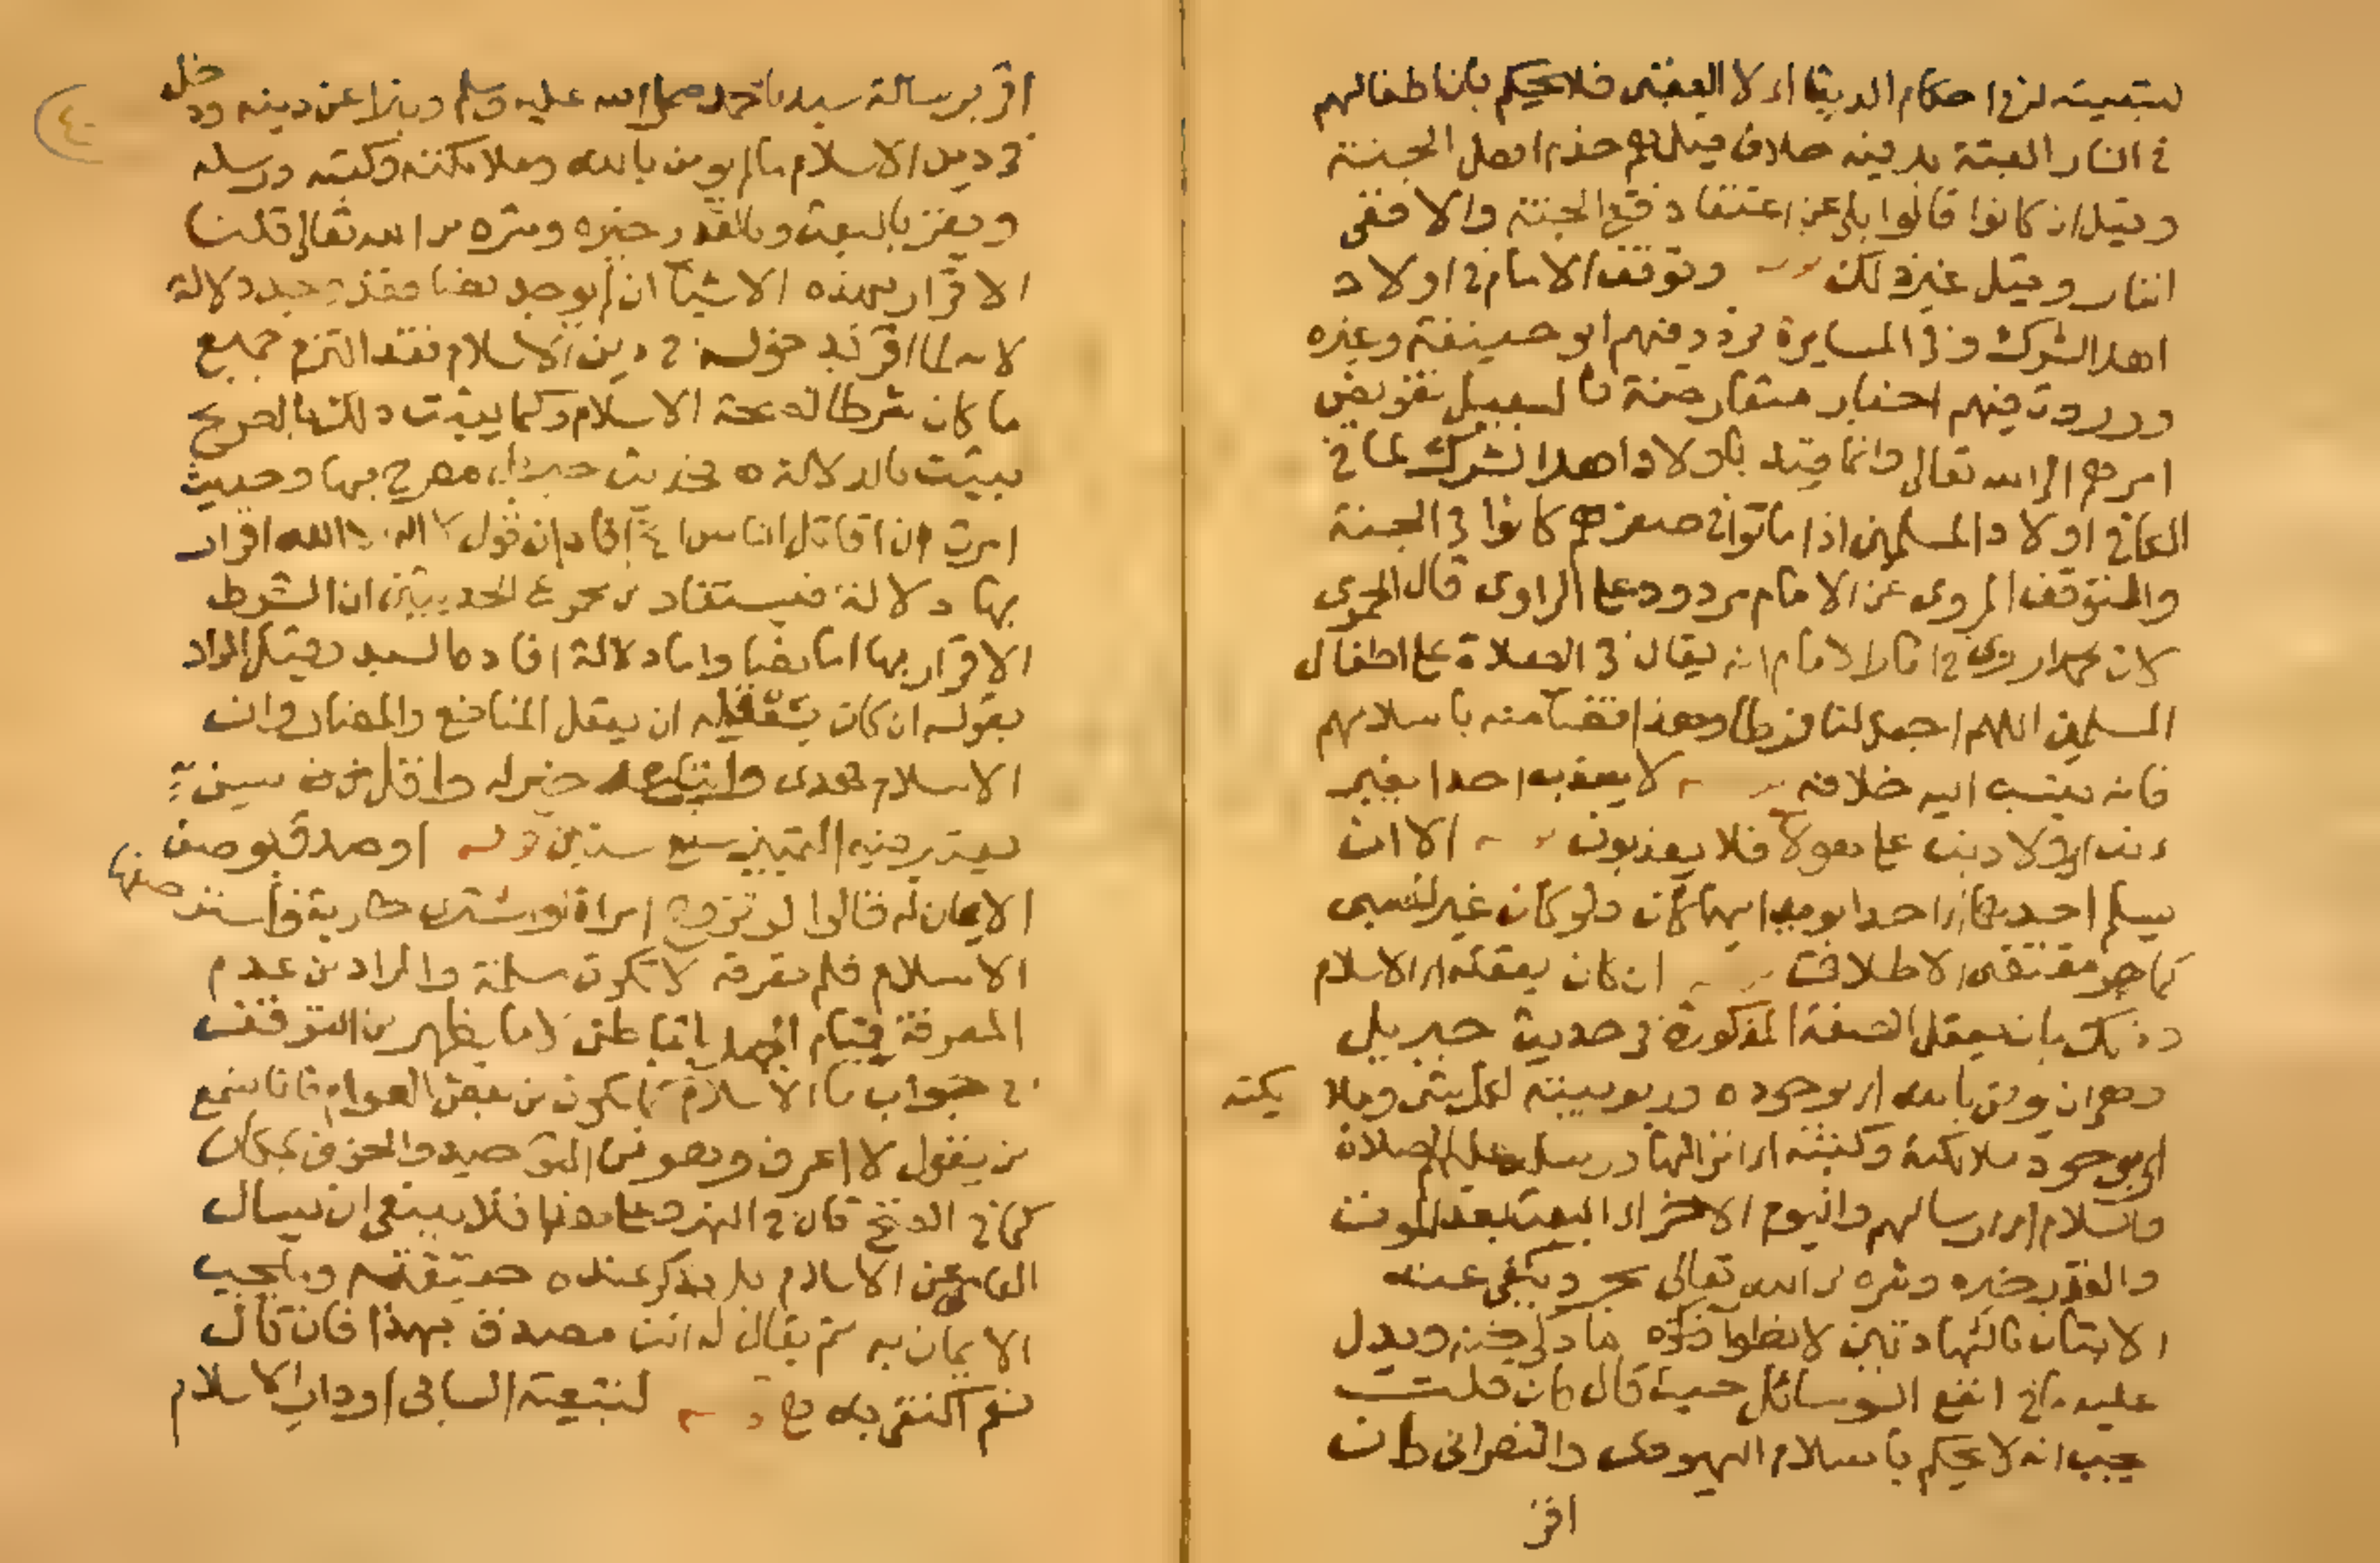 لتبعيته له في احكام الدنيا اي لا العقبى فلا يحكم بان اطفالهم
في النار البتة بل فيه خلاف قيل هم خدم اهل الجنة
وقيل ان كانوا قالوا بلى عن اعتقاد ففي الجنة والا ففي
النار وقيل غير ذلك وتوقف الامام في اولاد
اهل الشرك وفي المسايرة تردد فيهم ابو حنيفة وغيره
ووردت فيهم اخبار متعارضة فالسبيل تفويض
امرهم الى الله تعالى وانما قيد باولاد اهل الشرك لما في
الكافي اولاد المسلمين اذا ماتوا في صغرهم كانوا في الجنة
والتوقف المروي عن الامام مردود على الراوي قال الحموي
لان محمدا روى في اثار الامام انه يقال في الصلاة على اطفال
المسلمين اللهم اجعله لنا فرطا وهذا قضاء منه باسلامهم
فانه ينسب اليه خلافه لا يعذب احدا بغير
ذنب اي ولا ذنب على هولاء فلا يعذبون الا ان
يسلم احدهما اي احد ابويه ايهما كان ولو كان غير السبي
كما هو مقتضى الاطلاق ان كان يعقله اي الاسلام
وذلك بان يعقل الصفة المذكورة في حديث جبريل
وهو ان يومن بالله اي بوجوده وربوبيته لكل شي وملا يكته
اي بوجود ملايكته وكتبه اي انزالها ورسله عليهم الصلاة
والسلام اي ارسالهم واليوم الاخر اي البعث بعد الموت
والقدر خيره وشره من الله تعالى مجرد ويكفي عنه
الاتيان بالشهادتين لانطوا ذكره ما ذكر ضمنه ويدل
عليه ما في انفع الوسائل حيث قال فان قلت
يجب انه لا يحكم باسلام اليهودي والنصراني وان
اقر
اقر برسالة سيدنا محمد صلى الله عليه وسلم وتبرا عن دينه ودخل
في دين الاسلام ما لم يومن بالله وملائكته وكتبه ورسله
ويقر بالبعث وبالقدر خيره وشره من الله تعالى قلنا
الاقرار بهذه الاشيا ان لم يوجد نصا فقد وجد دلالة
لانه لما اقر بدخوله في دين الاسلام فقد التزم جميع
ما كان شرطا لصحة الاسلام وكما يثبت ذلك بالصريح
يثبت بالدلالة فحديث جبريل مصرح بها وحديث
امرت ان اقاتل الناس افاد ان قول لا اله الا الله اقرار
بها دلالة فيستفاد من مجموع الحديثين ان الشرط
الاقرار بها اما نصا واما دلالة افاده السيد وقيل المراد
بقوله ان كان يعقله ان يعقل المنافع والمضار وان
الاسلام هدى واتباعه خير له واقل سن
يعتبر فيه التمييز سبع سنين قوله او صدق بوصف
الايمان له قالوا لو تزوج امراة او اشترى جارية واستوصفها
الاسلام فلم تعرفه لا تكون مسلمة والمراد من عدم
المعرفة قيام الجهل بالباطن لا ما يظهر من التوقف
في جواب ما الاسلام كما يكون من بعض العوام فانا نسمع
من يقول لا اعرف وهو من التوحيد والخوف بمكان
كما في الفتح قال في النهر وعلى هذا فلا ينبغي ان يسال
العامي عن الاسلام بل يذكر عنده حقيقته وما يجب
الايمان به ثم يقال له انت مصدق بهذا فان قال
نعم اكتفى به لتبعية السابي او دار الاسلام
٤٠